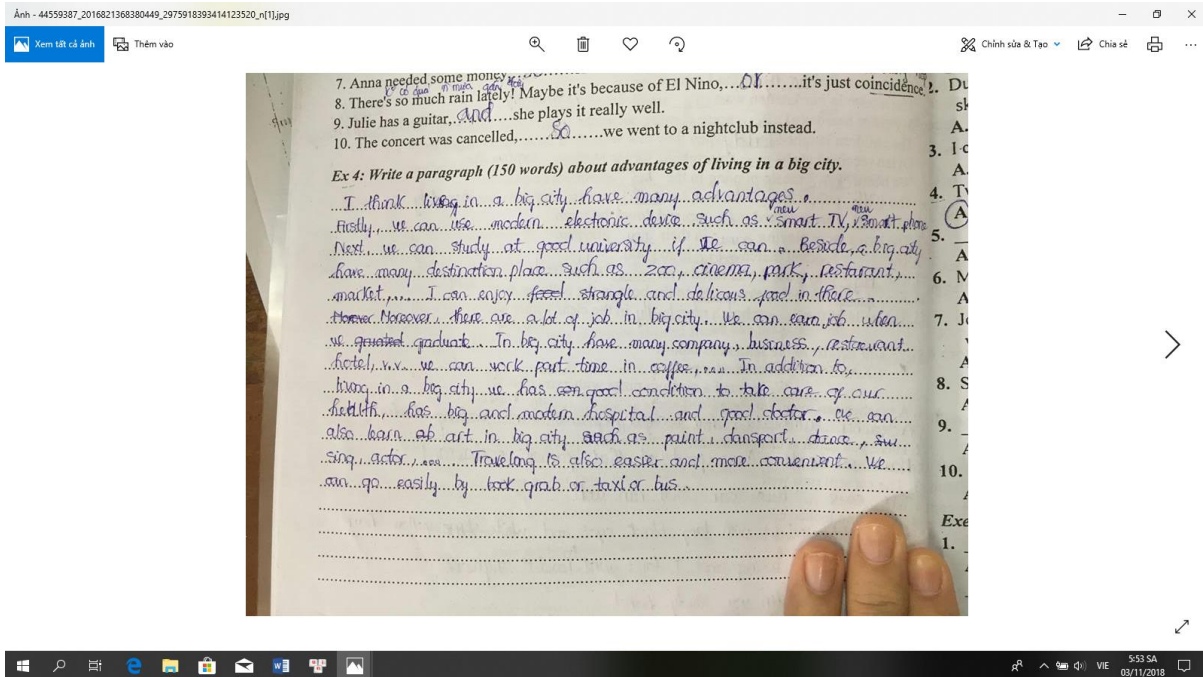 Ảnh - 44559387_2016821368380449_2975918393414123520_n[1].jpg
Xem tất cả ảnh Thêm vào Chỉnh sửa & Tạo Chia sẻ
7. Anna needed some money
8. There's so much rain lately! Maybe it's because of El Nino,....or........it's just coincidence.
9. Julie has a guitar,...and....she plays it really well.
10. The concert was cancelled,......so......we went to a nightclub instead.
Ex 4: Write a paragraph (150 words) about advantages of living in a big city.
I think living in a big city have many advantages.
new new
Firstly, we can use modern electronic device such as smart TV, smart phone
Next, we can study at good university if we can. Beside, a big city
have many destination place such as zoo, cinema, park, restaurant,
market,... I can enjoy food strangle and delicous food in there.
Morever Moreover, there are a lot of job in big city. We can earn job when
we graduate. In big city have many company, business, restauant
hotel, v.v we can work part time in coffee,.... In addition to,
living in a big city we has con good condition to take care of our
health, has big and modern hospital and good doctor. We can
also learn ab art in big city such as paint, dansport, dance,
sing, actor,.... Travelong is also easier and more convenient. We
can go easily by book grab or taxi or bus.
2. Du
sk
A.
3. I c
A.
4. Tv
A
5.
A
6. M
A
7. Jo
A
8. S
A
9.
10.
Exe
1.
VIE
5:53 SA
03/11/2018